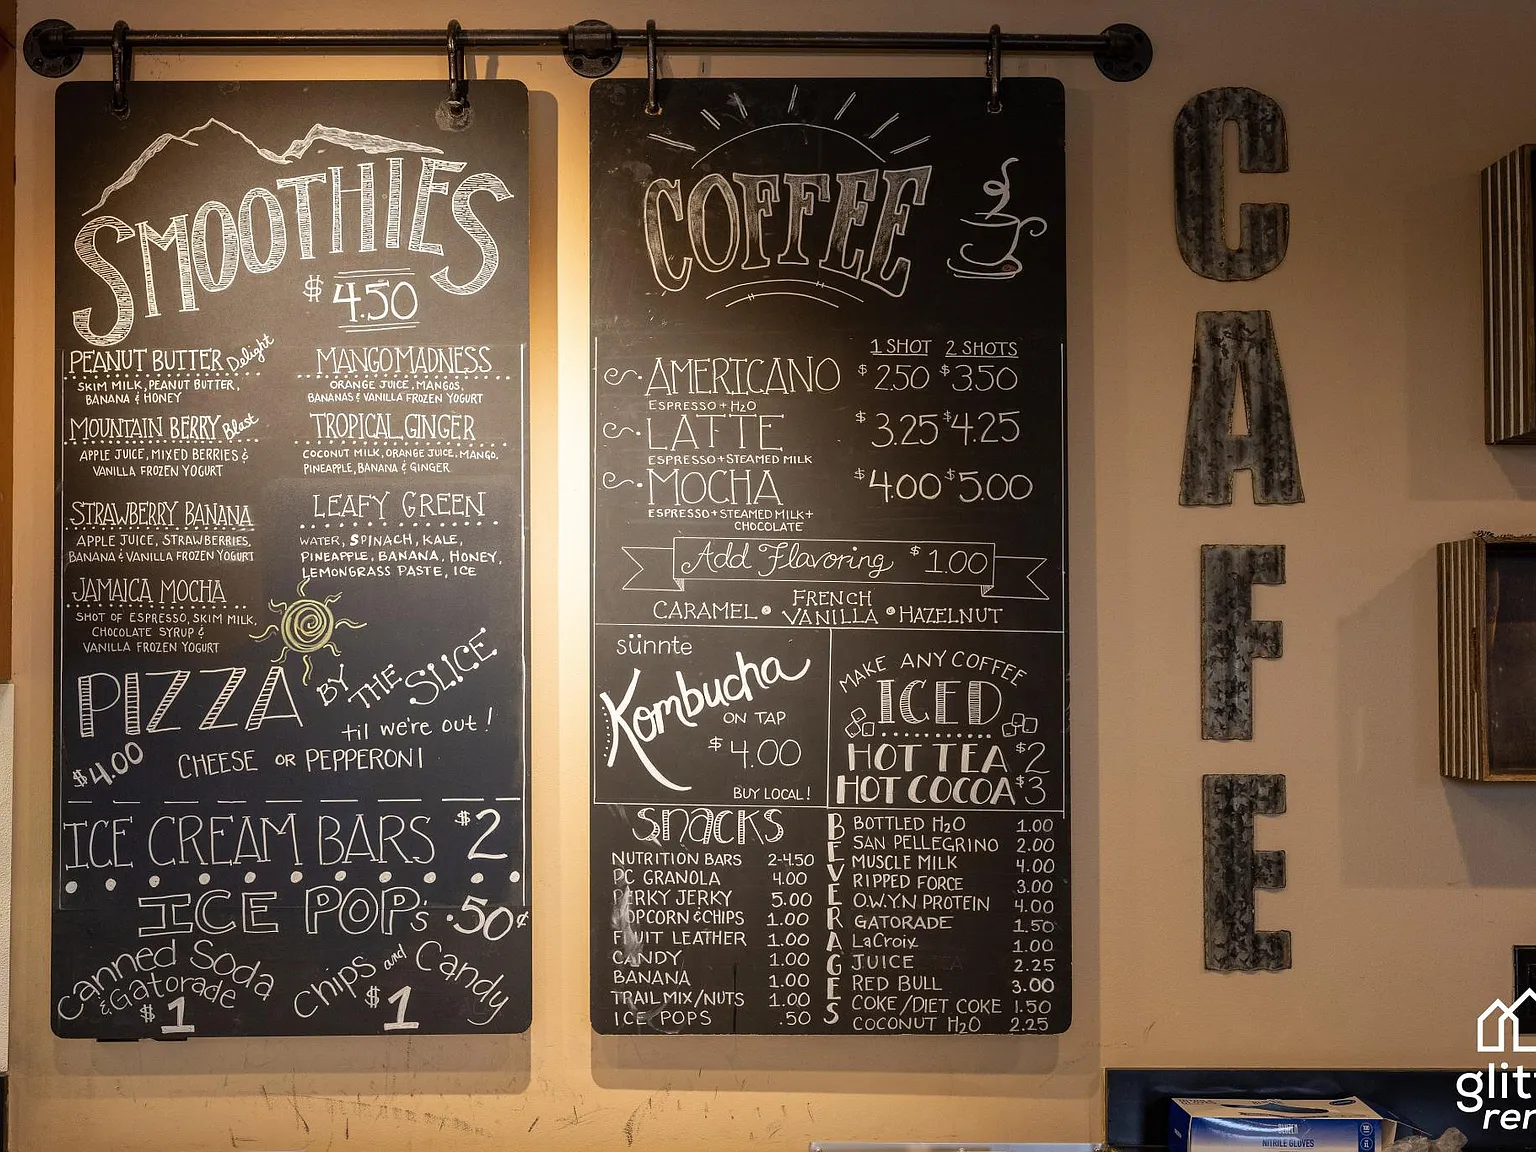 SMOOTHIES
$ 4.50
PEANUT BUTTER Delight
SKIM MILK, PEANUT BUTTER,
BANANA & HONEY
MOUNTAIN BERRY Blast
APPLE JUICE, MIXED BERRIES &
VANILLA FROZEN YOGURT
STRAWBERRY BANANA
APPLE JUICE, STRAWBERRIES,
BANANA & VANILLA FROZEN YOGURT
JAMAICA MOCHA
SHOT OF ESPRESSO, SKIM MILK,
CHOCOLATE SYRUP &
VANILLA FROZEN YOGURT
MANGO MADNESS
ORANGE JUICE, MANGOS,
BANANAS & VANILLA FROZEN YOGURT
TROPICAL GINGER
COCONUT MILK, ORANGE JUICE, MANGO,
PINEAPPLE, BANANA & GINGER
LEAFY GREEN
WATER, SPINACH, KALE,
PINEAPPLE, BANANA, HONEY,
LEMONGRASS PASTE, ICE
PIZZA BY THE SLICE
til we're out!
$4.00 CHEESE OR PEPPERONI
ICE CREAM BARS $2
ICE POP's .50¢
Canned Soda
& Gatorade
$1
Chips and Candy
$1
COFFEE
1 SHOT 2 SHOTS
AMERICANO $2.50 $3.50
ESPRESSO + H2O
LATTE $3.25 $4.25
ESPRESSO + STEAMED MILK
MOCHA $4.00 $5.00
ESPRESSO + STEAMED MILK +
CHOCOLATE
Add Flavoring $1.00
CARAMEL • FRENCH VANILLA • HAZELNUT
sünnte
Kombucha
ON TAP
$4.00
BUY LOCAL!
MAKE ANY COFFEE
ICED
HOT TEA $2
HOT COCOA $3
SNACKS
NUTRITION BARS 2-4.50
PC GRANOLA 4.00
PERKY JERKY 5.00
POPCORN & CHIPS 1.00
FRUIT LEATHER 1.00
CANDY 1.00
BANANA 1.00
TRAIL MIX/NUTS 1.00
ICE POPS .50
BEVERAGES
BOTTLED H2O 1.00
SAN PELLEGRINO 2.00
MUSCLE MILK 4.00
RIPPED FORCE 3.00
O.W.Y.N PROTEIN 4.00
GATORADE 1.50
LaCroix 1.00
JUICE 2.25
RED BULL 3.00
COKE/DIET COKE 1.50
COCONUT H2O 2.25
CAFE
NITRILE GLOVES
glitt
ren